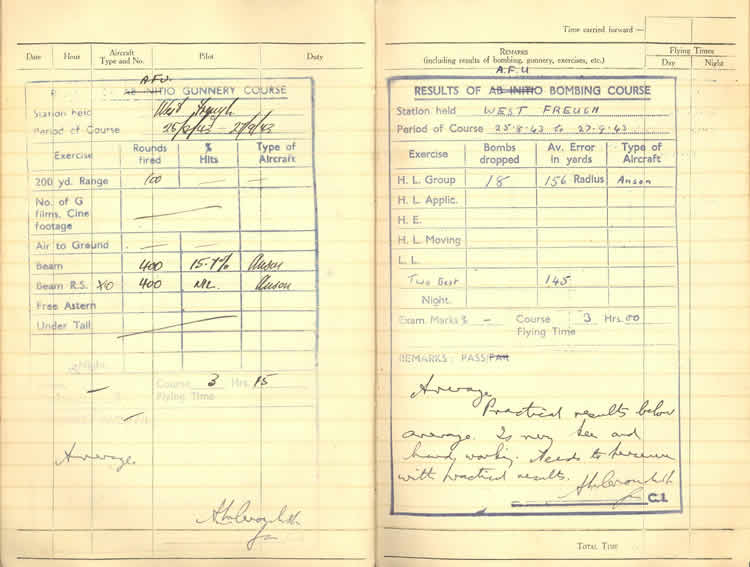 Date Hour Aircraft Type and No. Pilot Duty
A.F.U.
AB INITIO GUNNERY COURSE
Station held West Freugh
Period of Course 25/8/43 — 27/9/43
Exercise Rounds fired % Hits Type of Aircraft
200 yd. Range 100 — —
No. of G films, Cine footage
Air to Ground — —
Beam 400 15.7% Anson
Beam R.S. 400 NIL Anson
Free Astern
Under Tail
Night
Course Flying Time 3 Hrs. 15
Average
Time carried forward —
REMARKS (including results of bombing, gunnery, exercises, etc.) Flying Times
Day Night
A.F.U
RESULTS OF AB INITIO BOMBING COURSE
Station held WEST FREUGH
Period of Course 25.8.43 to 27.9.43
Exercise Bombs dropped Av. Error in yards Type of Aircraft
H. L. Group 18 156 Radius Anson
H. L. Applic.
H. E.
H. L. Moving
L. L.
Two Best 145
Night.
Exam. Marks % - Course Flying Time 3 Hrs. 00
REMARKS: PASS/FAIL
Average
Practical results below
average. Is very keen and
hard working. Needs to persevere
with practical results.
C.I.
TOTAL TIME